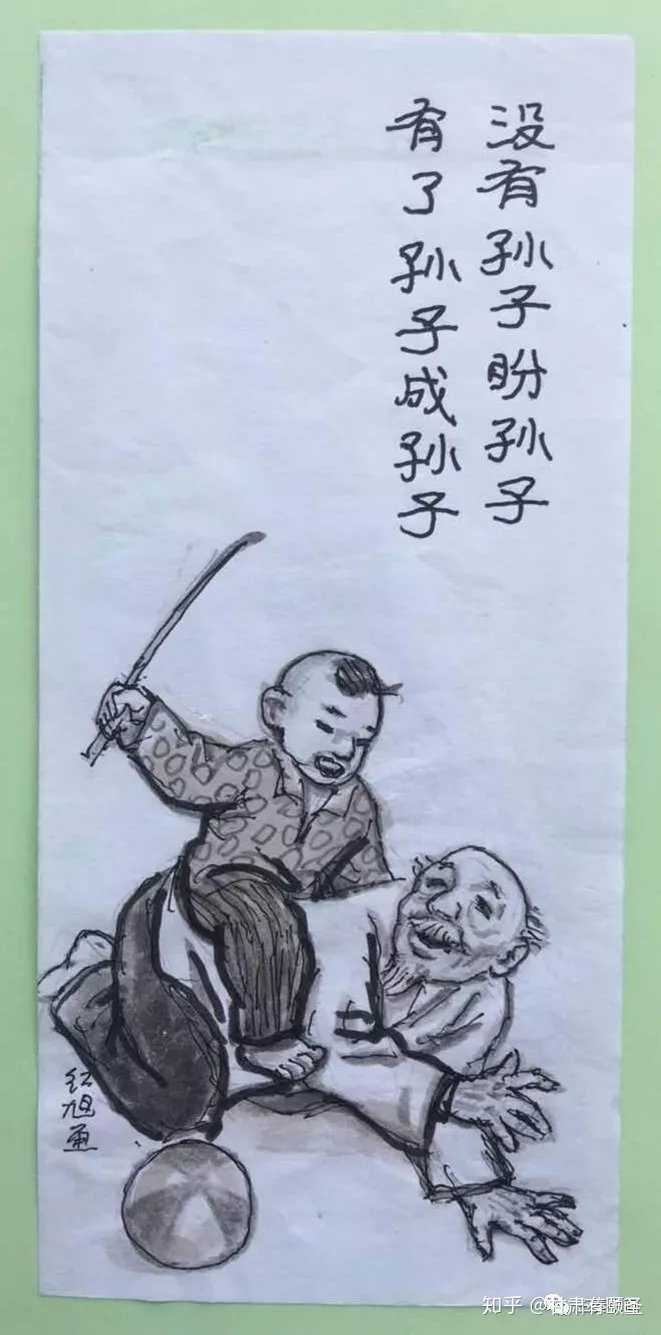 没有孙子盼孙子
有了孙子成孙子
红旭画
知乎 @